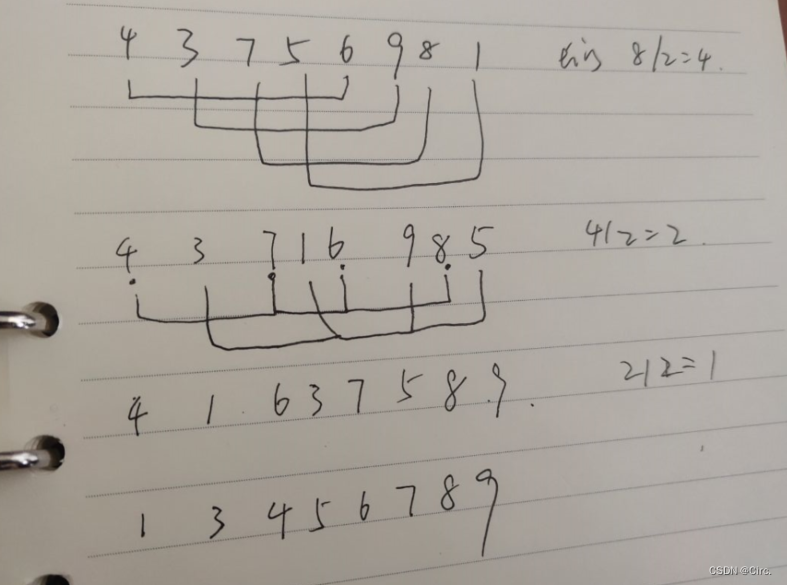 4 3 7 5 6 9 8 1 8/2=4.
4 3 7 1 6 9 8 5 4/2=2.
4 1 6 3 7 5 8 9. 2/2=1
1 3 4 5 6 7 8 9
CSDN @Circ.